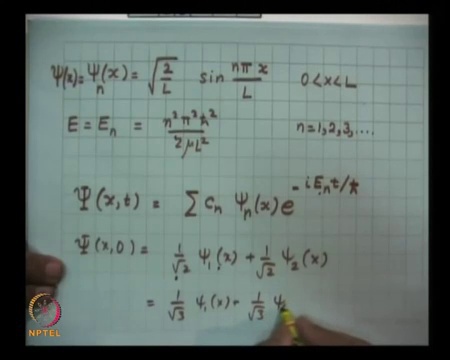 Ψ(x) = Ψₙ(x) = √(2/L) sin nπx/L 0 < x < L
E = Eₙ = n²π²ħ²/2μL² n = 1, 2, 3, ....
Ψ(x,t) = Σ cₙ Ψₙ(x) e^(-iEₙt/ħ)
Ψ(x,0) = 1/√2 Ψ₁(x) + 1/√2 Ψ₂(x)
= 1/√3 Ψ₁(x) + 1/√3 Ψ₂
NPTEL